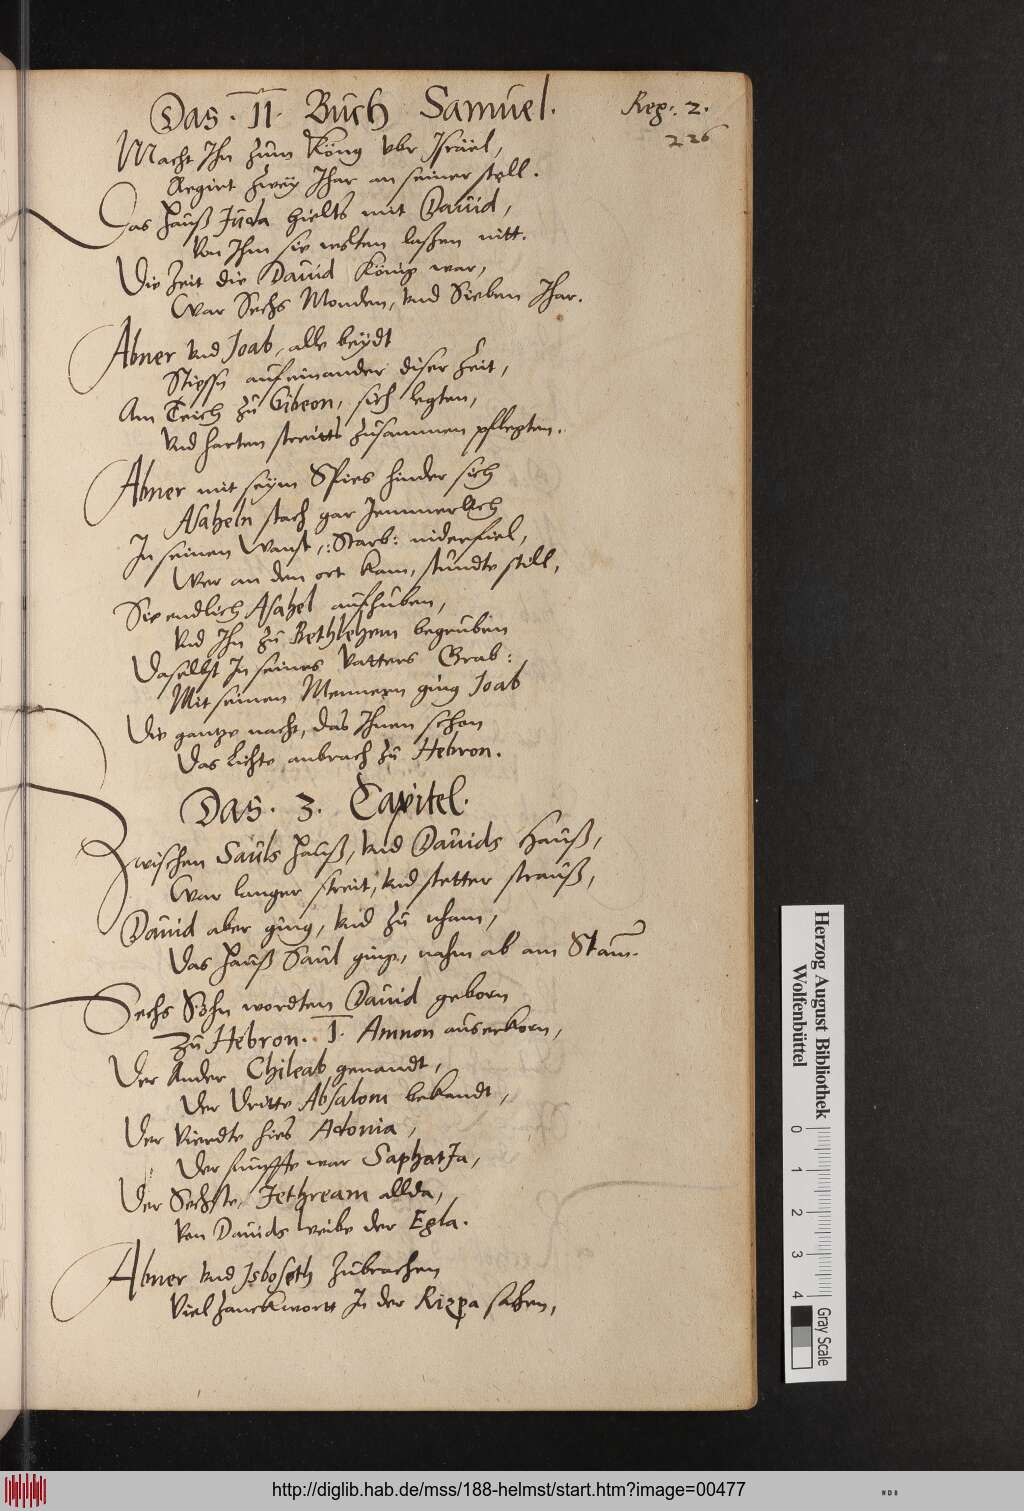 Das. II. Buch Samuel.
Reg: 2.
226
Macht Ihn zum König vbr Israel,
Regirt zwey Ihar an seiner stell.
Das Hauß Juda hielts mit Dauid,
Von Ihm sie wolten laßen nitt.
Die Zeit die Dauid König war,
War Sechs Monden, vnd Sieben Ihar.
Abner vnd Joab, alle beydt
Stiessn auf einander diser Zeit,
Am Teich zu Gibeon, sich legten,
Vnd harten streitts zusammen pflegten.
Abner mit seym Spies hinder sich
Asaheln stach gar Jemmerlich
In seinen Wanst, :Starb: niderfiel,
Wer an den ort kam, stundte still,
Sie endlich Asahel aufhuben,
Vnd Ihn zu Bethlehem begruben
Daselbst In seines Vatters Grab:
Mit seinen Mennern ging Joab
Die gantze nacht, das Ihnen schon
Das Lichte anbrach zu Hebron.
Das. 3. Capitel.
Zwischen Sauls Hauß, vnd Dauids Hauß,
War langer streit, vnd stetter strauß,
Dauid aber ging, vnd zu nham,
Das Hauß Saul ging, nahm ab am Stam.
Sechs Söhn wordten Dauid geborn
Zu Hebron. I. Amnon auserkorn,
Der Ander Chileab genandt,
Der Dritte Absalom bekandt,
Der Vierdte hies Adonia,
Der funffte war SaphatJa,
Der Sechste, Jethream allda,
Von Dauids weibe der Egla.
Abner vnd Isboseth zubrachen
Viel Zanckwortt In der Rizpa sachen,
Herzog August Bibliothek
Wolfenbüttel
0 1 2 3 4
Gray Scale
http://diglib.hab.de/mss/188-helmst/start.htm?image=00477